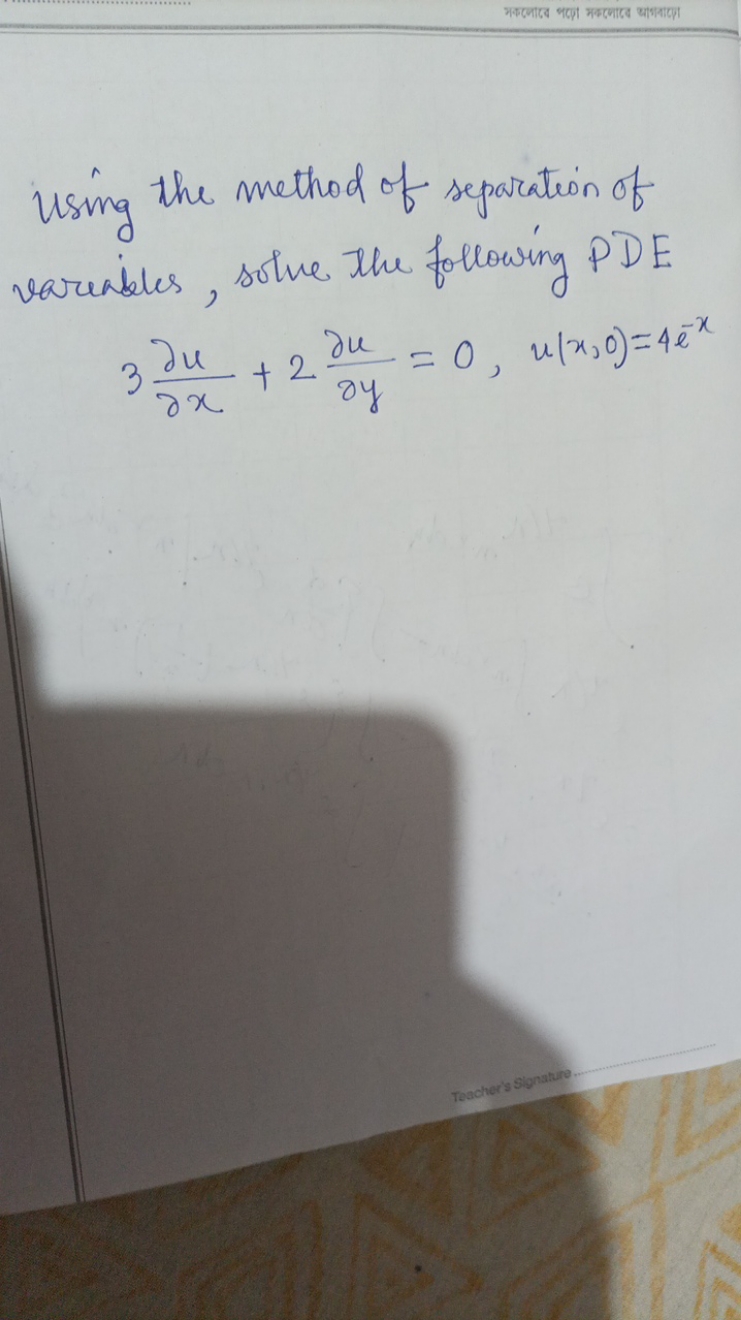 Using the method of separation of
variables, solve the following PDE
3 ∂u/∂x + 2 ∂u/∂y = 0, u(x,0)=4e^-x
Teacher's Signature